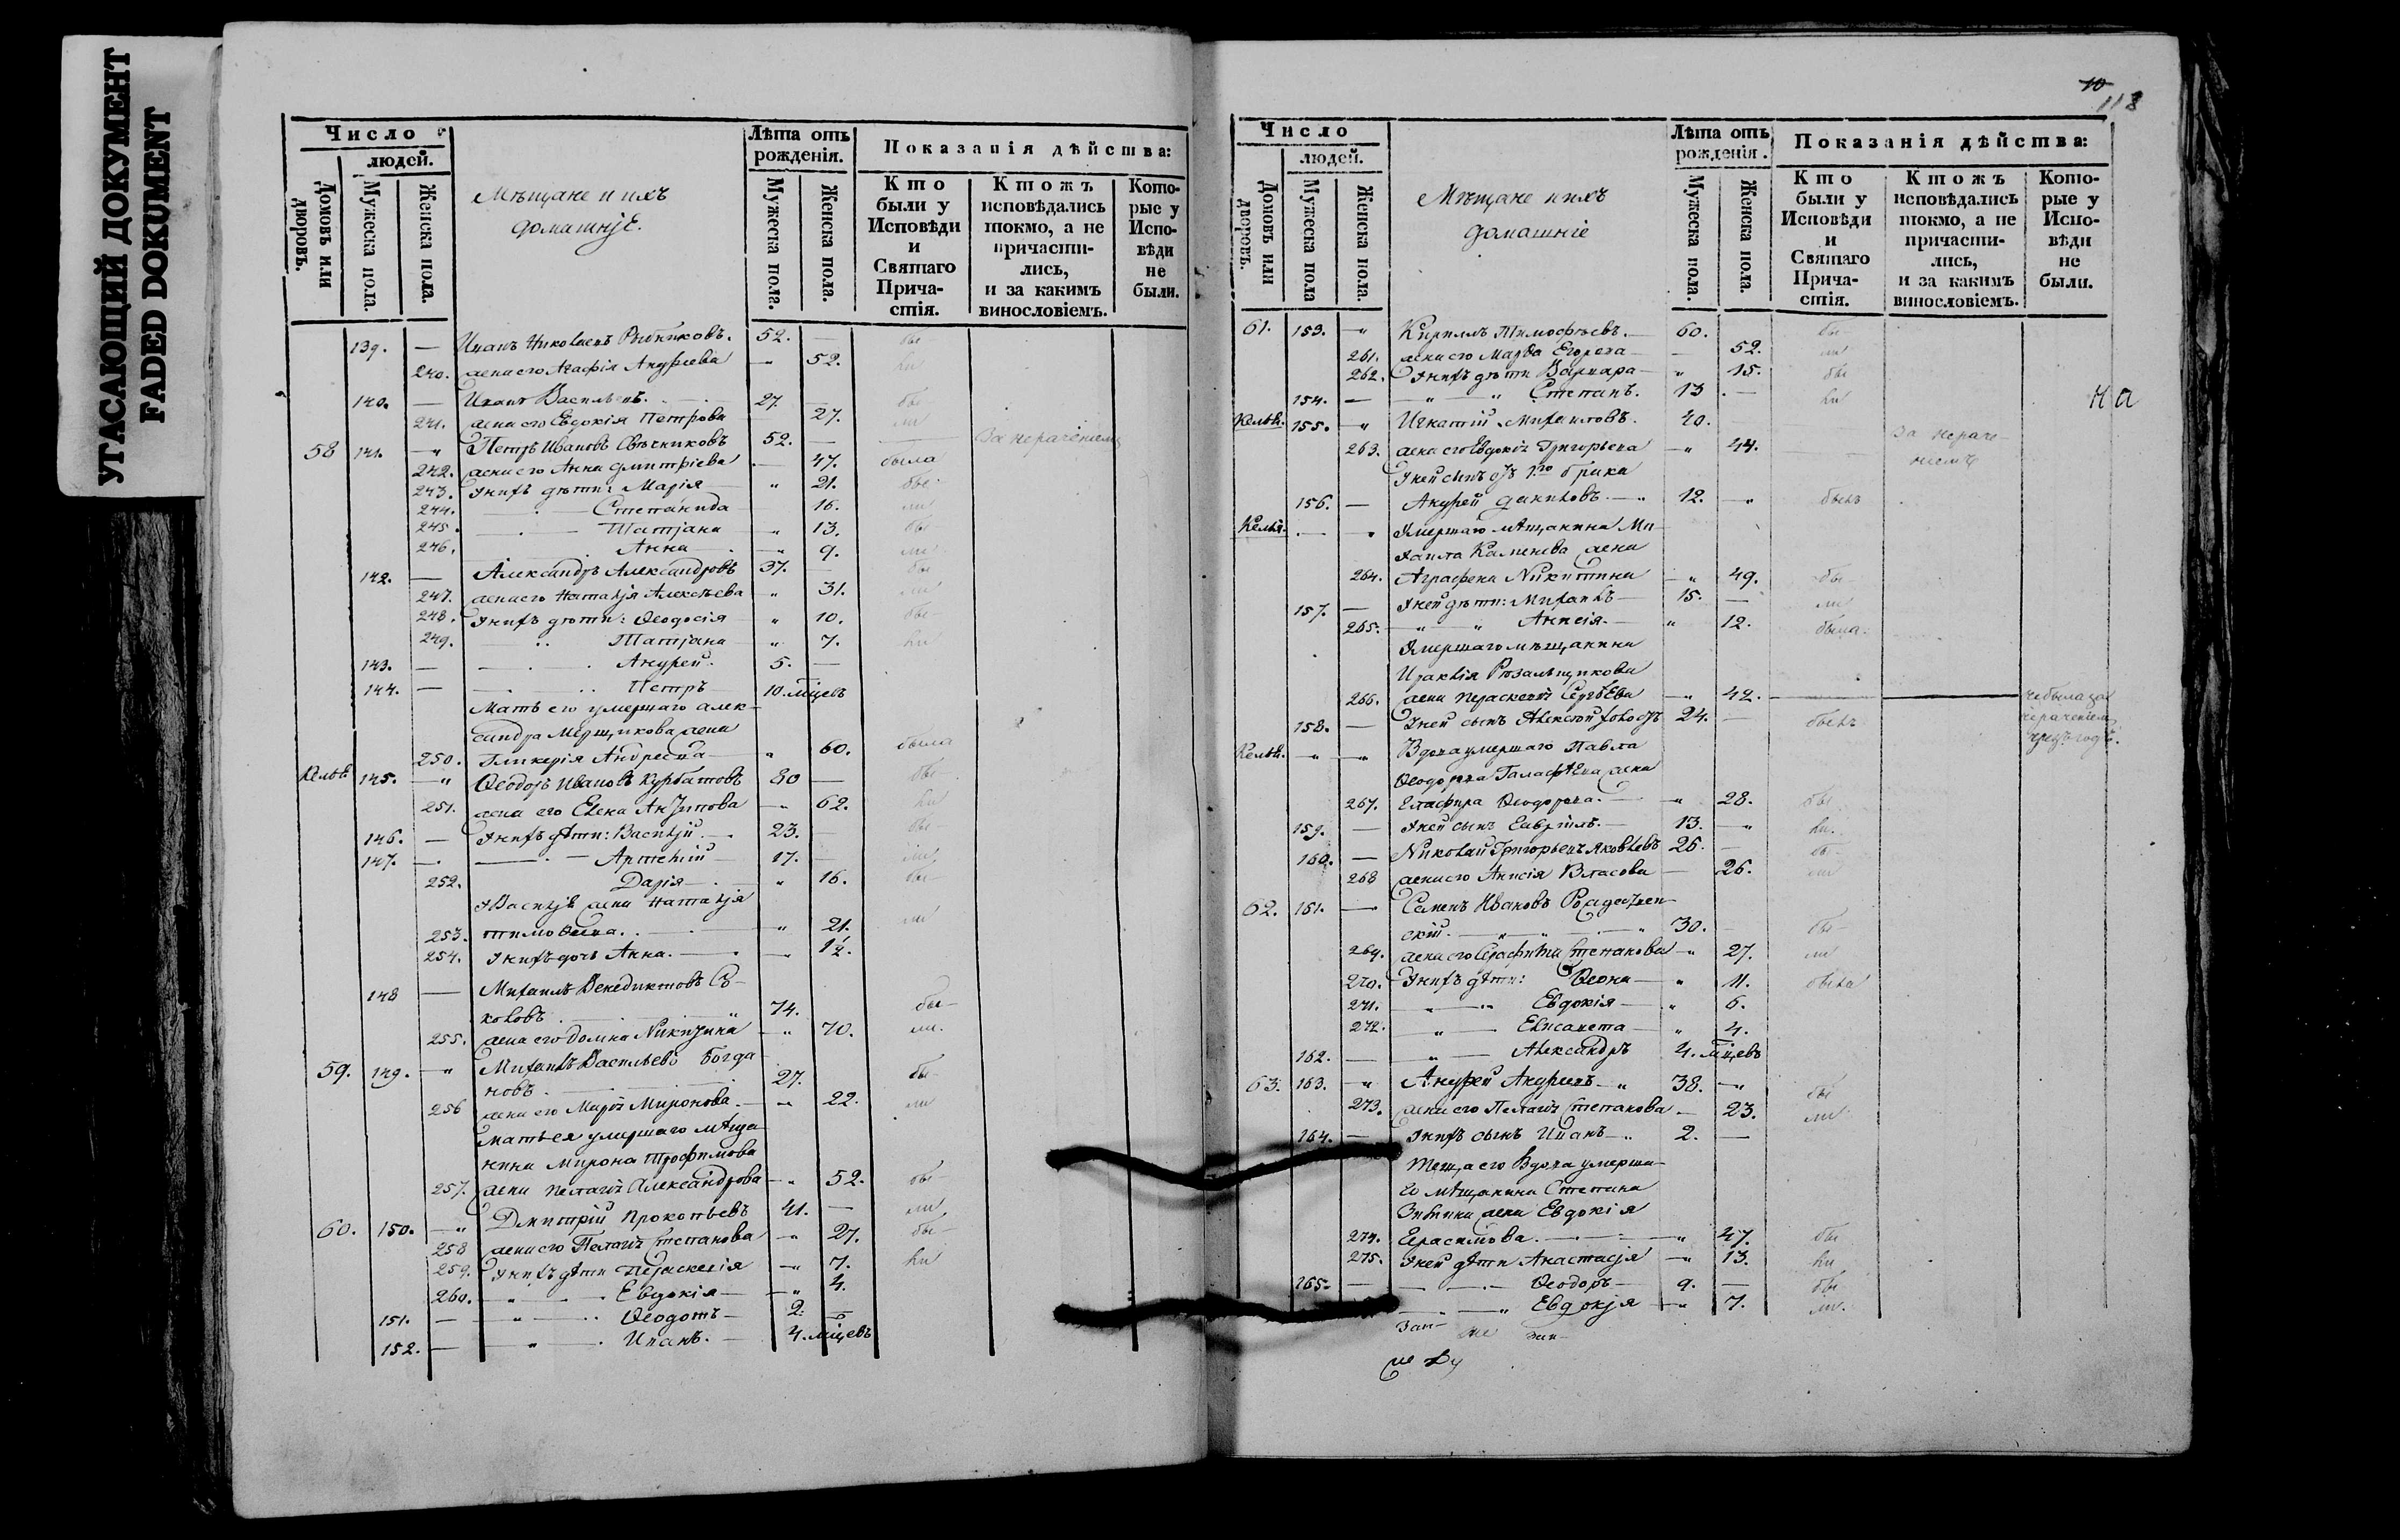 УГАСАЮЩИЙ ДОКУМЕНТ
FADED DOKUMENT
Число
людей.
Домовъ или дворовъ.
Мужеска пола.
Женска пола.
Мѣщане и ихъ
домашніе.
Лѣта отъ рожденія.
Мужеска пола.
Женска пола.
Показанія дѣйства:
Кто были у Исповѣди и Святаго Причастія.
Ктожъ исповѣдались токмо, а не причастились, и за какимъ винословіемъ.
Которые у Исповѣди не были.
139. — Иванъ Николаевъ 52. — бы
240. жена его Агафія Андреева — 52. ли
140. — Иванъ Васильевъ. 27. — бы
241. жена его Евдокія Петрова 27. ли
58 141. — Петръ Ивановъ Свѣчниковъ 52. — за нераченіемъ
242. жена его Анна Дмитріева — 47. была
243. У нихъ дѣти: Марія " 21. бы
244. Степанида 16. ли
245. Татіана " 13. бы
246. Анна " 9. ли
142. — Александръ Александровъ 37. — бы
247. жена его Наталія Алексѣева " 31. ли
248. У нихъ дѣти: Ѳеодосія " 10. бы
249. Татіана " 7. ли
143. — Андрей. 5. —
144. — Петръ 10. мцевъ
Мать его умершаго Алек-
сандра жена
250. Гликерія Андреева " 60. была
Келья 145. — " Ѳеодоръ Ивановъ Курбатовъ 80 — бы
251. жена его Елена Антипова — 62. ли
146. — У нихъ дѣти: Василій 23. — бы
147. — Артемій 17. — ли
252. Дарія " 16. бы
У Василія жена Наталія
253. Тимоѳеева. " 21. ли
254. У нихъ дочь Анна. — 1½.
148 — Михаилъ Венедиктовъ Со-
коловъ " 74. бы
255. жена его Домна Никитина " 70. ли.
59. 149. — " Михаилъ Васильевъ Богда
новъ. 27. бы
256 жена его Марѳа Миронова. " 22. ли
Мать ея умершаго мѣща
нина Мирона Трофимова
257. жена Пелагія Александрова " 52. бы
60. 150. — " Дмитрій Прокопьевъ 41. — ли
258 жена его Пелагія Степанова " 27. бы
259. У нихъ дѣти Параскевія " 7. ли
260. Евдокія " 4.
151. — " Ѳеодотъ 2. —
152. — " Иванъ. 4. мцевъ
10
118
Число
людей.
Домовъ или дворовъ.
Мужеска пола
Женска пола.
Мѣщане и ихъ
домашніе
Лѣта отъ рожденія.
Мужеска пола.
Женска пола.
Показанія дѣйства:
Кто были у Исповѣди и Святаго Причастія.
Ктожъ исповѣдались токмо, а не причастились, и за какимъ винословіемъ.
Которые у Исповѣди не были.
61. 153. " Кириллъ Тимофѣевъ. 60. бы
261. жена его Марѳа Егорова — 52. ли
262. У нихъ дѣти Варвара " 15. бы
154. — " " Степанъ. 13 — ли
на
Келья. 155. " Игнатій Михаиловъ. 40.
263. жена его Евдокія Григорьева " 44. за нераче-
ніемъ
У ней сынъ отъ 1го брака
156. — Андрей 12. " былъ
Келья. — " Умершаго мѣщанина Ми-
хаила Каменева жена
264. Аграфена Никитина " 49. бы
157. — У ней дѣти: Михаилъ 15. — ли
265. " " Анисія. " 12. была
Умершаго мѣщанина
Ираклія жена
266. Параскевія Сергѣева " 42. — не была за
нераченіемъ
158. — У ней сынъ Алексѣй холостъ 24. — былъ
Келья. " — " Вдова умершаго Павла
Ѳеодорова жена
267. Ѳеодорова. " 28. бы
159. — У ней сынъ Гавріилъ. 13. " ли.
160. — Николай Григорьевъ Яковлевъ 26. — бы
268 жена его Анисія Власова — 26. ли
62. 161. — Семенъ Ивановъ Рождествен-
скій. " 30. — бы
269. жена его Серафима Степанова " 27. ли
270. У нихъ дѣти: Ѳеона " 11. была
271. " Евдокія " 6.
272. " Елисавета " 4.
162. — " Александръ 4. мцевъ
63. 163. " Андрей Андреевъ " 38. " бы
273. жена его Пелагія Степанова — 23. ли
164. — У нихъ сынъ Иванъ " 2. —
Теща его вдова умерша-
го мѣщанина Степана
жена Евдокія
274. Герасимова. " 47. бы
275. У ней дѣти Анастасія " 13. ли
165. — Ѳеодоръ 9. — бы
" Евдокія " 7. ли.